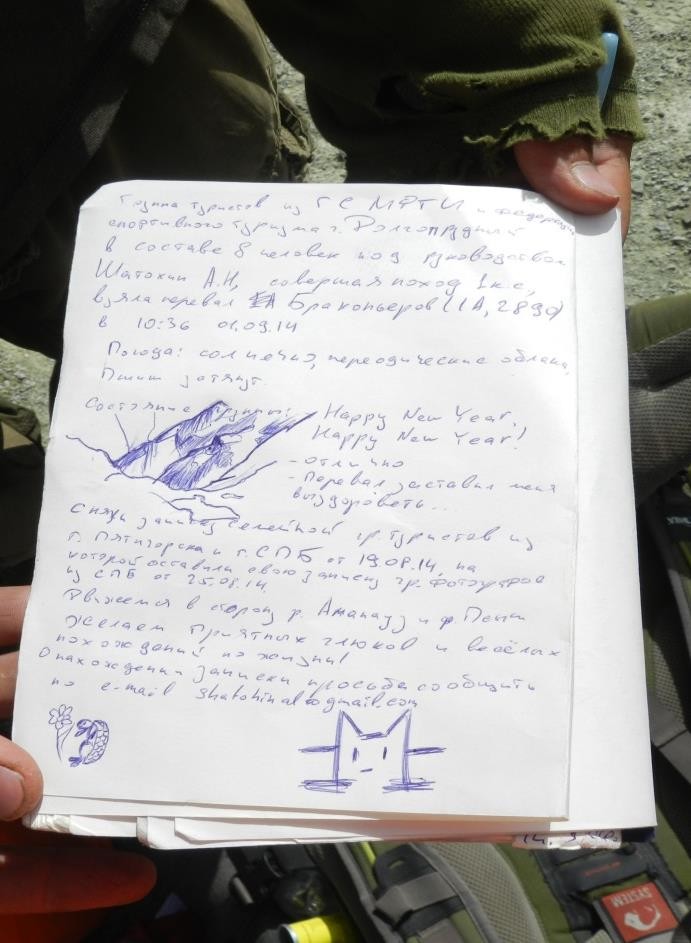 Группа туристов из ГС МФТИ и Федерации
спортивного туризма г. Долгопрудный
в составе 8 человек под руководством
Шатохин А.Н, совершая поход 1 к.с,
взяла перевал Браконьеров (1А, 2890)
в 10:36 01.09.14
Погода: солнечно, переодические облака,
Пшиш затянут.
Состояние группы:
Happy New Year,
Happy New Year!
- отлично
- Перевал заставил меня
выздороветь...
Сняли записку семейной гр. туристов из
г. Пятигорска и г. СПБ от 19.08.14, на
которой оставили свою записку гр. фотографов
из СПБ от 25.08.14.
Движемся в сторону р. Аманауз и ф. Псыш
Желаем приятных глюков и весёлых
похождений по жизни!
О нахождении записки просьба сообщить
по e-mail shatohinal@gmail.com
SYSTEM